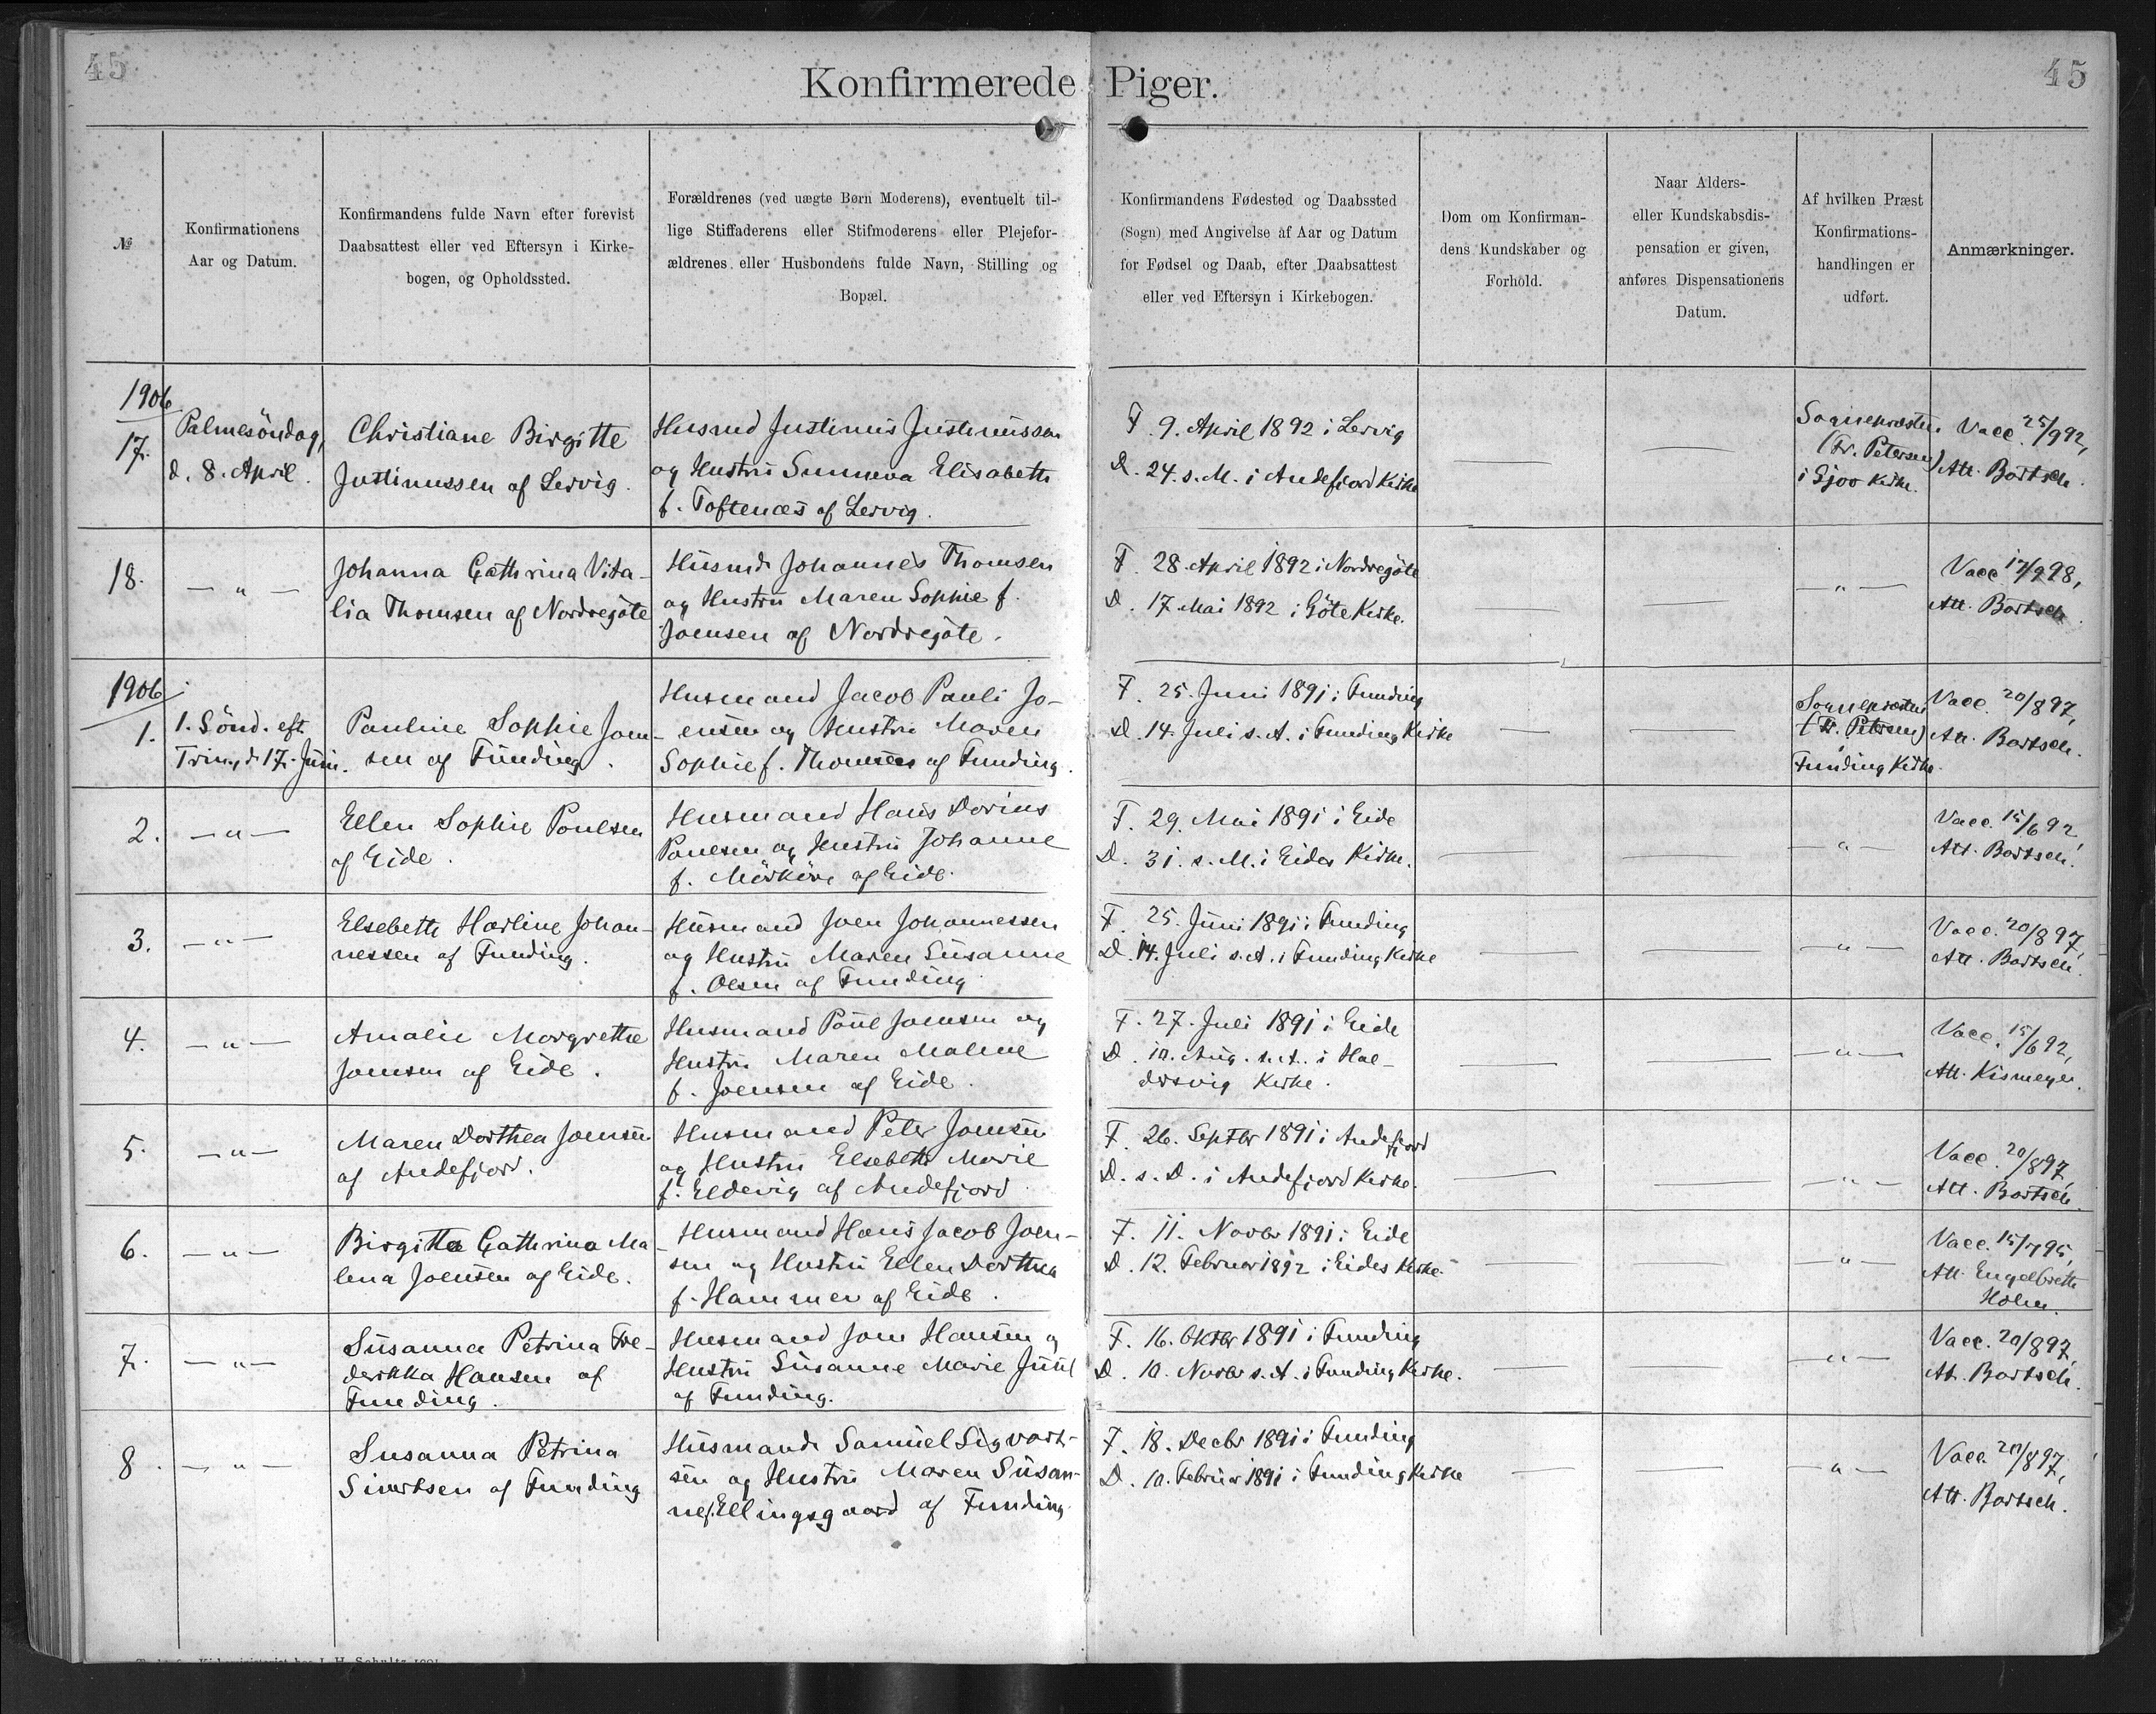 45
45
Konfirmerede Piger.
№
Konfirmationens
Aar og Datum.
Konfirmandens fulde Navn efter forevist
Daabsattest eller ved Eftersyn i Kirke-
bogen, og Opholdssted.
Forældrenes (ved uægte Børn Moderens), eventuelt til-
lige Stiffaderens eller Stifmoderens eller Plejefor-
ældrenes eller Husbondens fulde Navn, Stilling og
Bopæl.
Konfirmandens Fødested og Daabssted
(Sogn) med Angivelse af Aar og Datum
for Fødsel og Daab, efter Daabsattest
eller ved Eftersyn i Kirkebogen.
Dom om Konfirman-
dens Kundskaber og
Forhold.
Naar Alders-
eller Kundskabsdis-
pensation er given,
anføres Dispensationens
Datum.
Af hvilken Præst
Konfirmations-
handlingen er
udført.
Anmærkninger.
1906
17.
Palmesöndag,
d. 8. April.
Christiane Birgitte
Justinussen af Lervig.
Husmd Justinus Justinussen
og Hustru Sunneva Elisabeth
f. Toftenæs af Lervig.
F. 9. April 1892 i Lervig
D. 24. s. M. i Andefjord Kirke
Sognepræsten
(Fr. Petersen)
i Gjov Kirke.
Vacc. 25/9 92,
Att. Bartsch.
18.
— " —
Johanna Cathrina Vita-
lia Thomsen af Nordregöte
Husmd. Johannes Thomsen
og Hustru Maren Sophie f.
Joensen af Nordregöte.
F. 28. April 1892 i Nordregöte
D. 17. Mai 1892 i Göte Kirke.
— " —
Vacc. 17/9 98,
Att. Bartsch.
1906
1.
1. Sönd. eft.
Trin., d. 17. Juni.
Pauline Sophie Joen-
sen af Funding.
Husmand Jacob Pauli Jo-
ensen og Hustru Maren
Sophie f. Thomsen af Funding.
F. 25. Juni 1891 i Funding
D. 14. Juli s. A. i Funding Kirke
Sognepræsten
(Fr. Petersen)
Funding Kirke.
Vacc. 20/8 97,
Att. Bartsch.
2.
— " —
Ellen Sophie Poulsen
af Eide.
Husmand Hans Dorius
Poulsen og Hustru Johanne
f. Mörköre af Eide.
F. 29. Mai 1891 i Eide
D. 31. s. M. i Eides Kirke.
— " —
Vacc. 15/6 92,
Att. Bartsch.
3.
— " —
Elsebeth Harline Johan-
nessen af Funding.
Husmand Joen Johannessen
og Hustru Maren Susanne
f. Olsen af Funding
F. 25. Juni 1891 i Funding
D. 14. Juli s. A. i Funding Kirke
— " —
Vacc. 20/8 97,
Att. Bartsch.
4.
— " —
Amalie Margrethe
Joensen af Eide.
Husmand Poul Joensen og
Hustru Maren Malene
f. Joensen af Eide.
F. 27. Juli 1891 i Eide
D. 10. Aug. s. A. i Hal-
dersvig Kirke.
— " —
Vacc. 15/6 92,
Att. Kismeyer.
5.
— " —
Maren Dorthea Joensen
af Andefjord.
Husmand Peter Joensen
og Hustru Elsebeth Marie
f. Eldevig af Andefjord
F. 26. Septbr 1891 i Andefjord
D. s. D. i Andefjord Kirke.
— " —
Vacc. 20/8 97,
Att. Bartsch.
6.
— " —
Birgitta Cathrina Ma-
lena Joensen af Eide.
Husmand Hans Jacob Joen-
sen og Hustru Ellen Dorthea
f. Hammer af Eide.
F. 11. Novbr 1891 i Eide
D. 12. Februar 1892 i Eides Kirke.
— " —
Vacc. 15/7 95,
Att. Engelbreth
Holm.
7.
— " —
Susanna Petrina Fre-
derikka Hansen af
Funding.
Husmand Joen Hansen og
Hustru Susanne Marie Juul
af Funding.
F. 16. Oktbr 1891 i Funding
D. 10. Novbr s. A. i Funding Kirke.
— " —
Vacc. 20/8 97,
Att. Bartsch.
8.
— " —
Susanna Petrina
Sivertsen af Funding
Husmand Samuel Sigvart-
sen og Hustru Maren Susan-
ne f. Ellingsgaard af Funding.
F. 18. Decbr 1891 i Funding
D. 10. Februar 1891 i Funding Kirke
— " —
Vacc. 20/8 97,
Att. Bartsch.